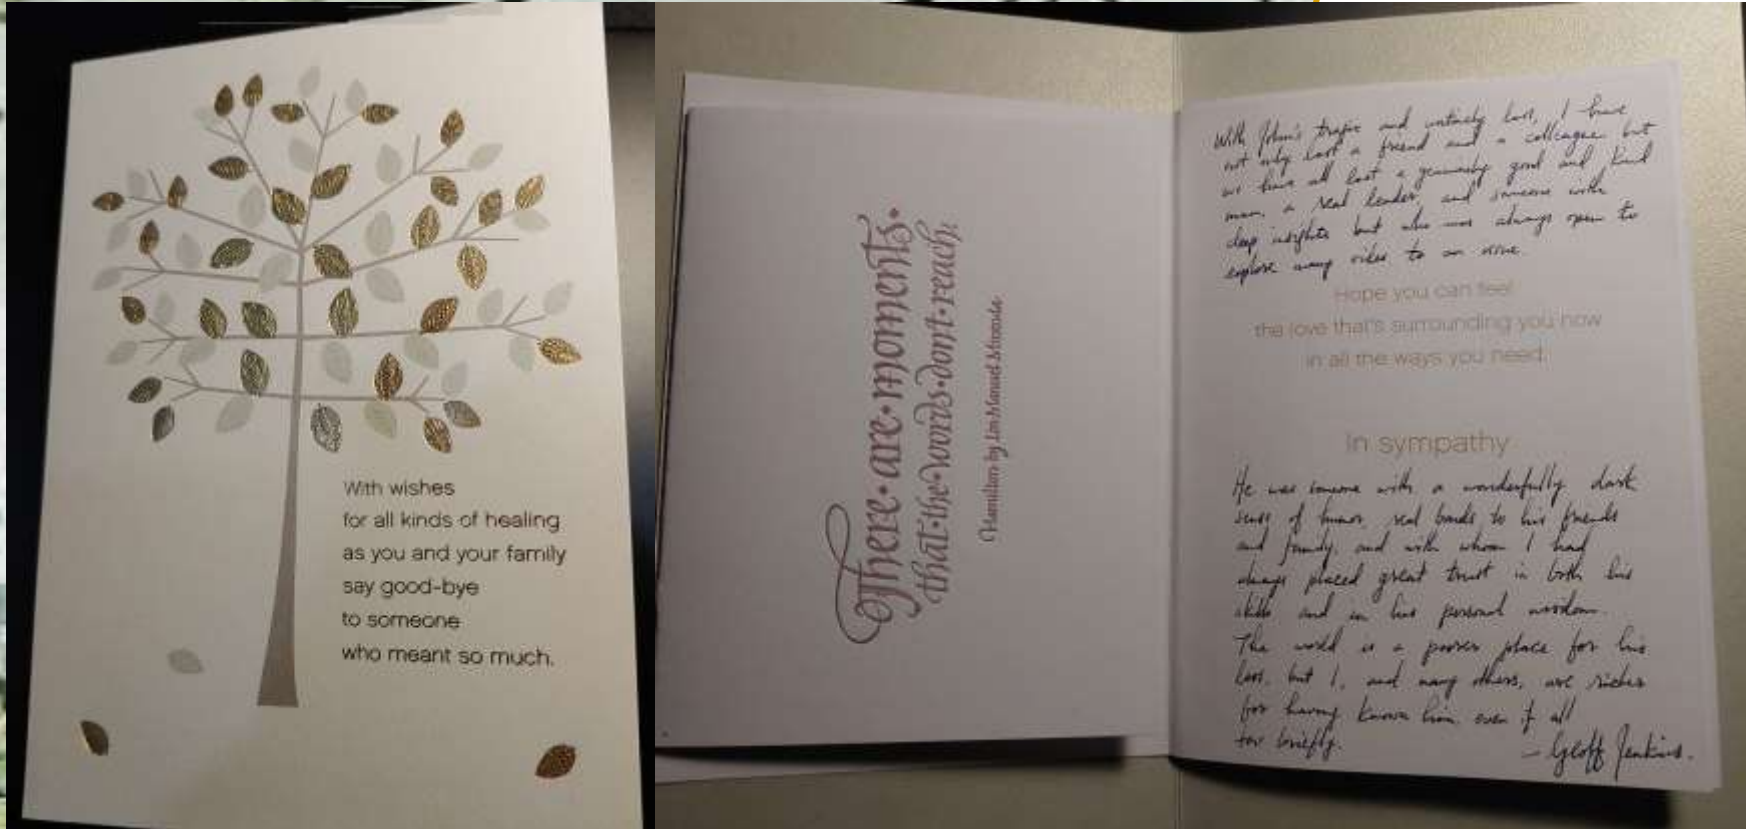 With wishes
for all kinds of healing
as you and your family
say good-bye
to someone
who meant so much.
There•are•moments•
that•the•words•dont•reach;
Hamilton by Lin Manuel Miranda
With John's tragic and untimely loss, I have
not only lost a friend and a colleague but
we have all lost a genuinely good and kind
man, a real leader, and someone with
deep insights but who was always open to
explore many sides to an issue.
Hope you can feel
the love that's surrounding you now
in all the ways you need.
In sympathy
He was someone with a wonderfully dark
sense of humor, real bonds to his friends
and family, and with whom I had
always placed great trust in both his
skills and in his personal wisdom.
The world is a poorer place for his
loss, but I, and many others, are richer
for having known him even if all
too briefly.
– Geoff Jenkins.